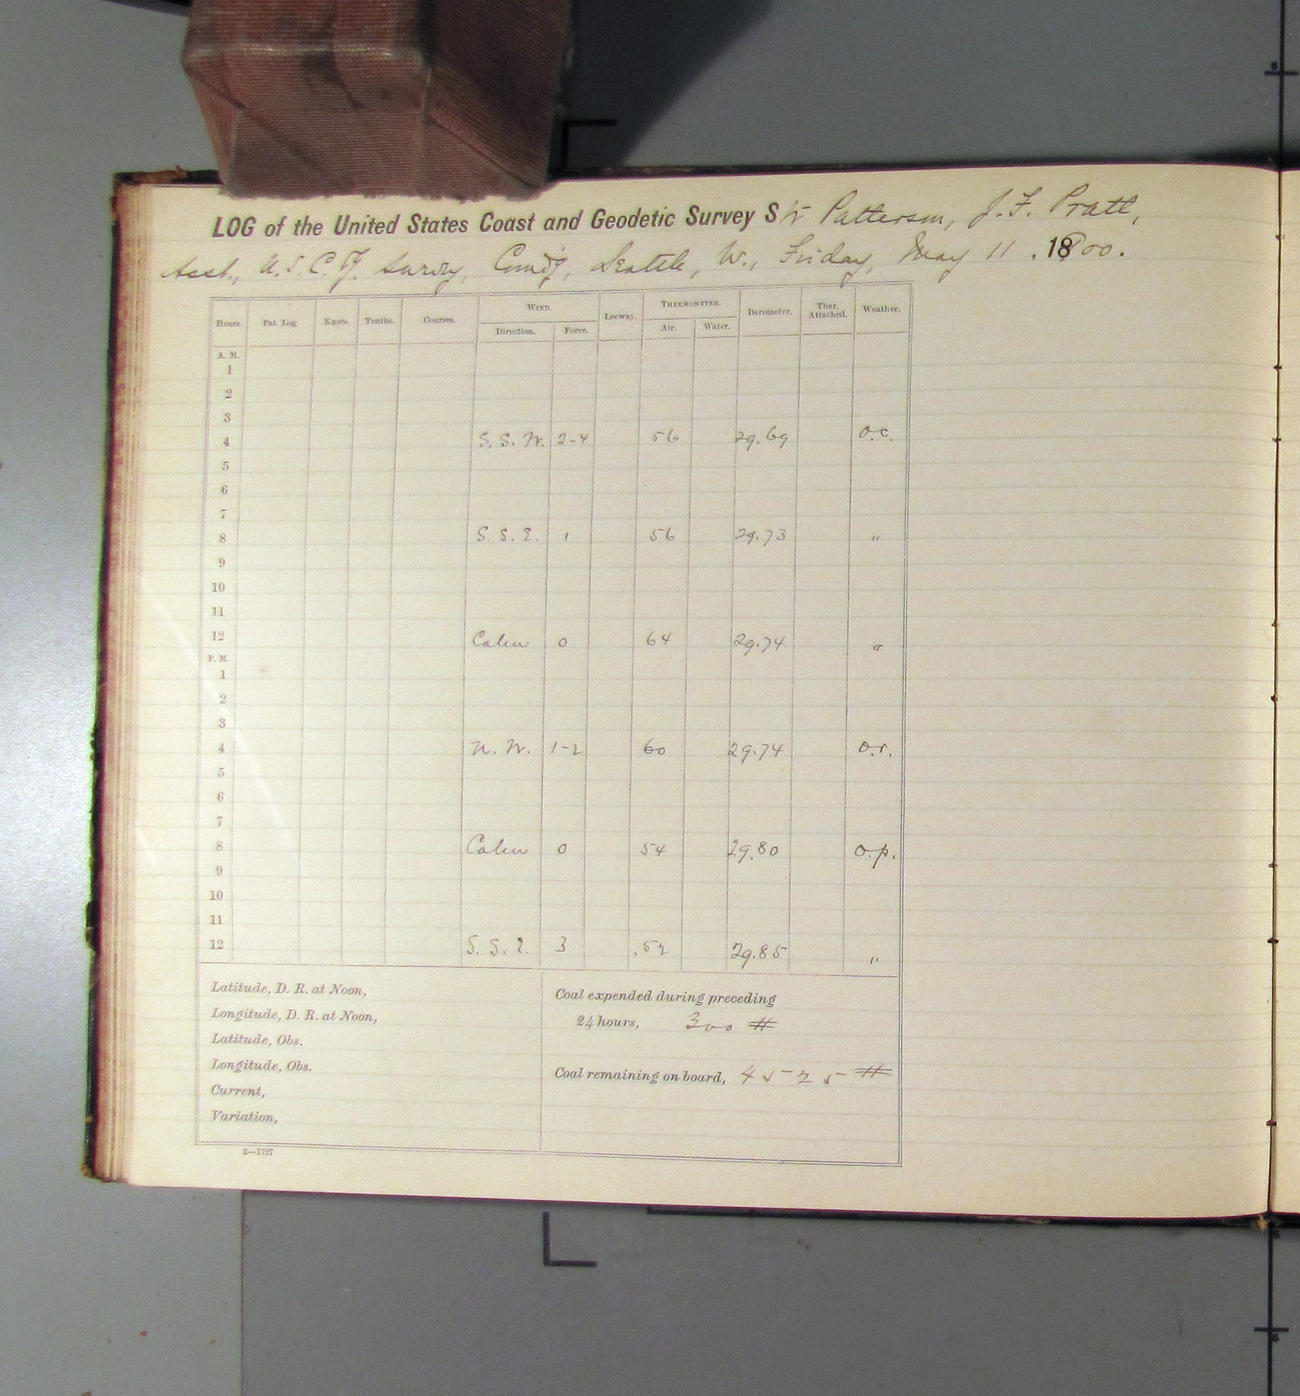 LOG of the United States Coast and Geodetic Survey Str Patterson, J. F. Pratt,
Asst., U. S. C. & G. Survey, Comd'g, Seattle, W., Friday, May 11. 1900.
Hours. Pat. Log. Knots. Tenths. Courses. WIND. Leeway. THERMOMETER. Barometer. Ther. Attached. Weather.
Direction. Force. Air. Water.
A. M.
1
2
3
4 S. S. W. 2-4 56 29.69 o.c.
5
6
7
8 S. S. E. 1 56 29.73 "
9
10
11
12 Calm 0 64 29.74 "
P. M.
1
2
3
4 N. W. 1-2 60 29.74 o.r.
5
6
7
8 Calm 0 54 29.80 o.p.
9
10
11
12 S. S. E. 3 52 29.85 "
Latitude, D. R. at Noon,
Longitude, D. R. at Noon,
Latitude, Obs.
Longitude, Obs.
Current,
Variation,
Coal expended during preceding
24 hours, 300 #
Coal remaining on board, 4525 #
3—1727